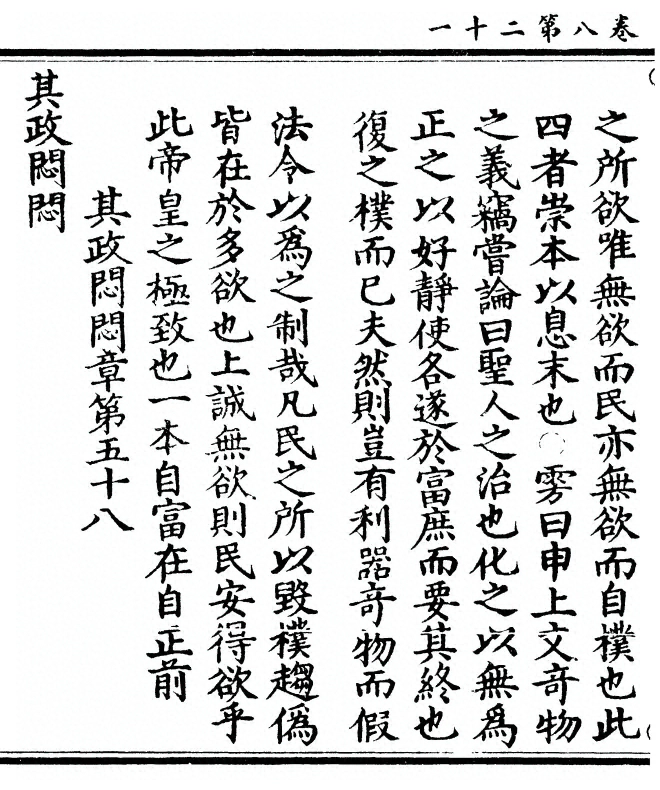 卷八第二十一
之所欲唯無欲而民亦無欲而自樸也此
四者崇本以息末也〇雱曰申上文竒物
之義竊嘗論曰聖人之治也化之以無爲
正之以好靜使各遂於富庶而要其終也
復之樸而已夫然則豈有利器竒物而假
法令以爲之制哉凡民之所以毀樸趨僞
皆在於多欲也上誠無欲則民安得欲乎
此帝皇之極致也一本自富在自正前
其政悶悶章第五十八
其政悶悶